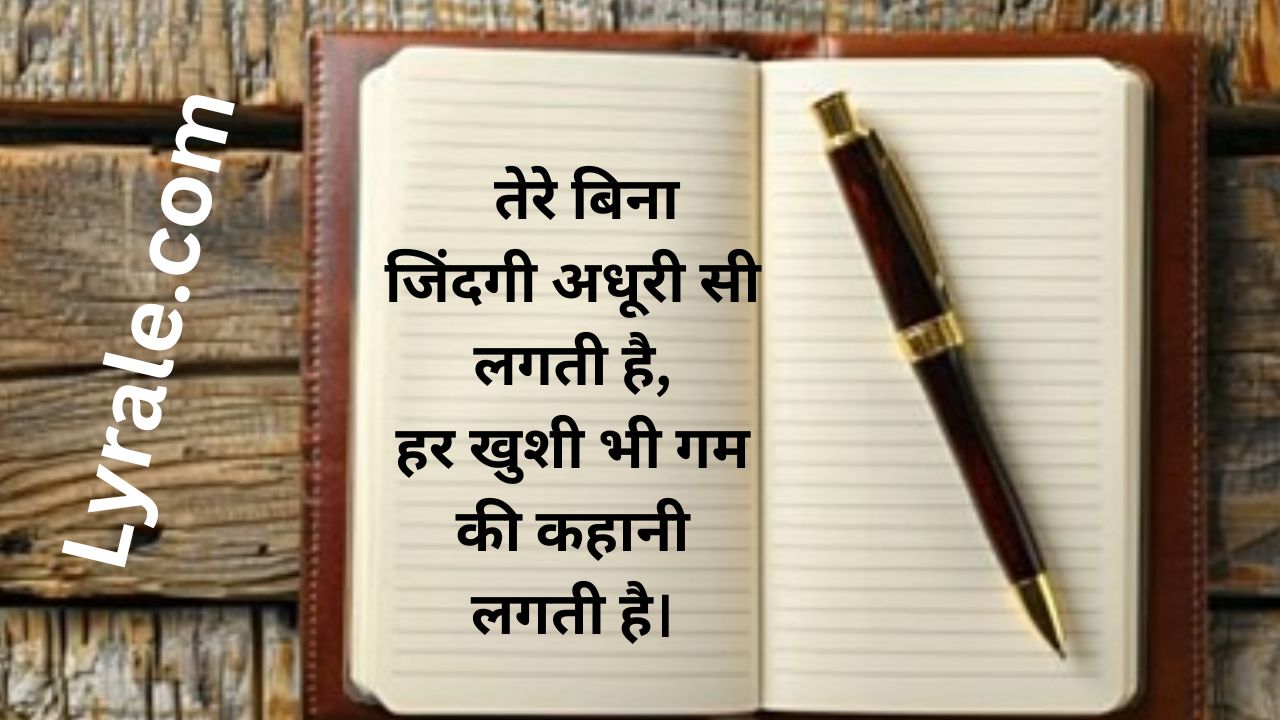 Lyrale.com
तेरे बिना
जिंदगी अधूरी सी
लगती है,
हर खुशी भी गम
की कहानी
लगती है।